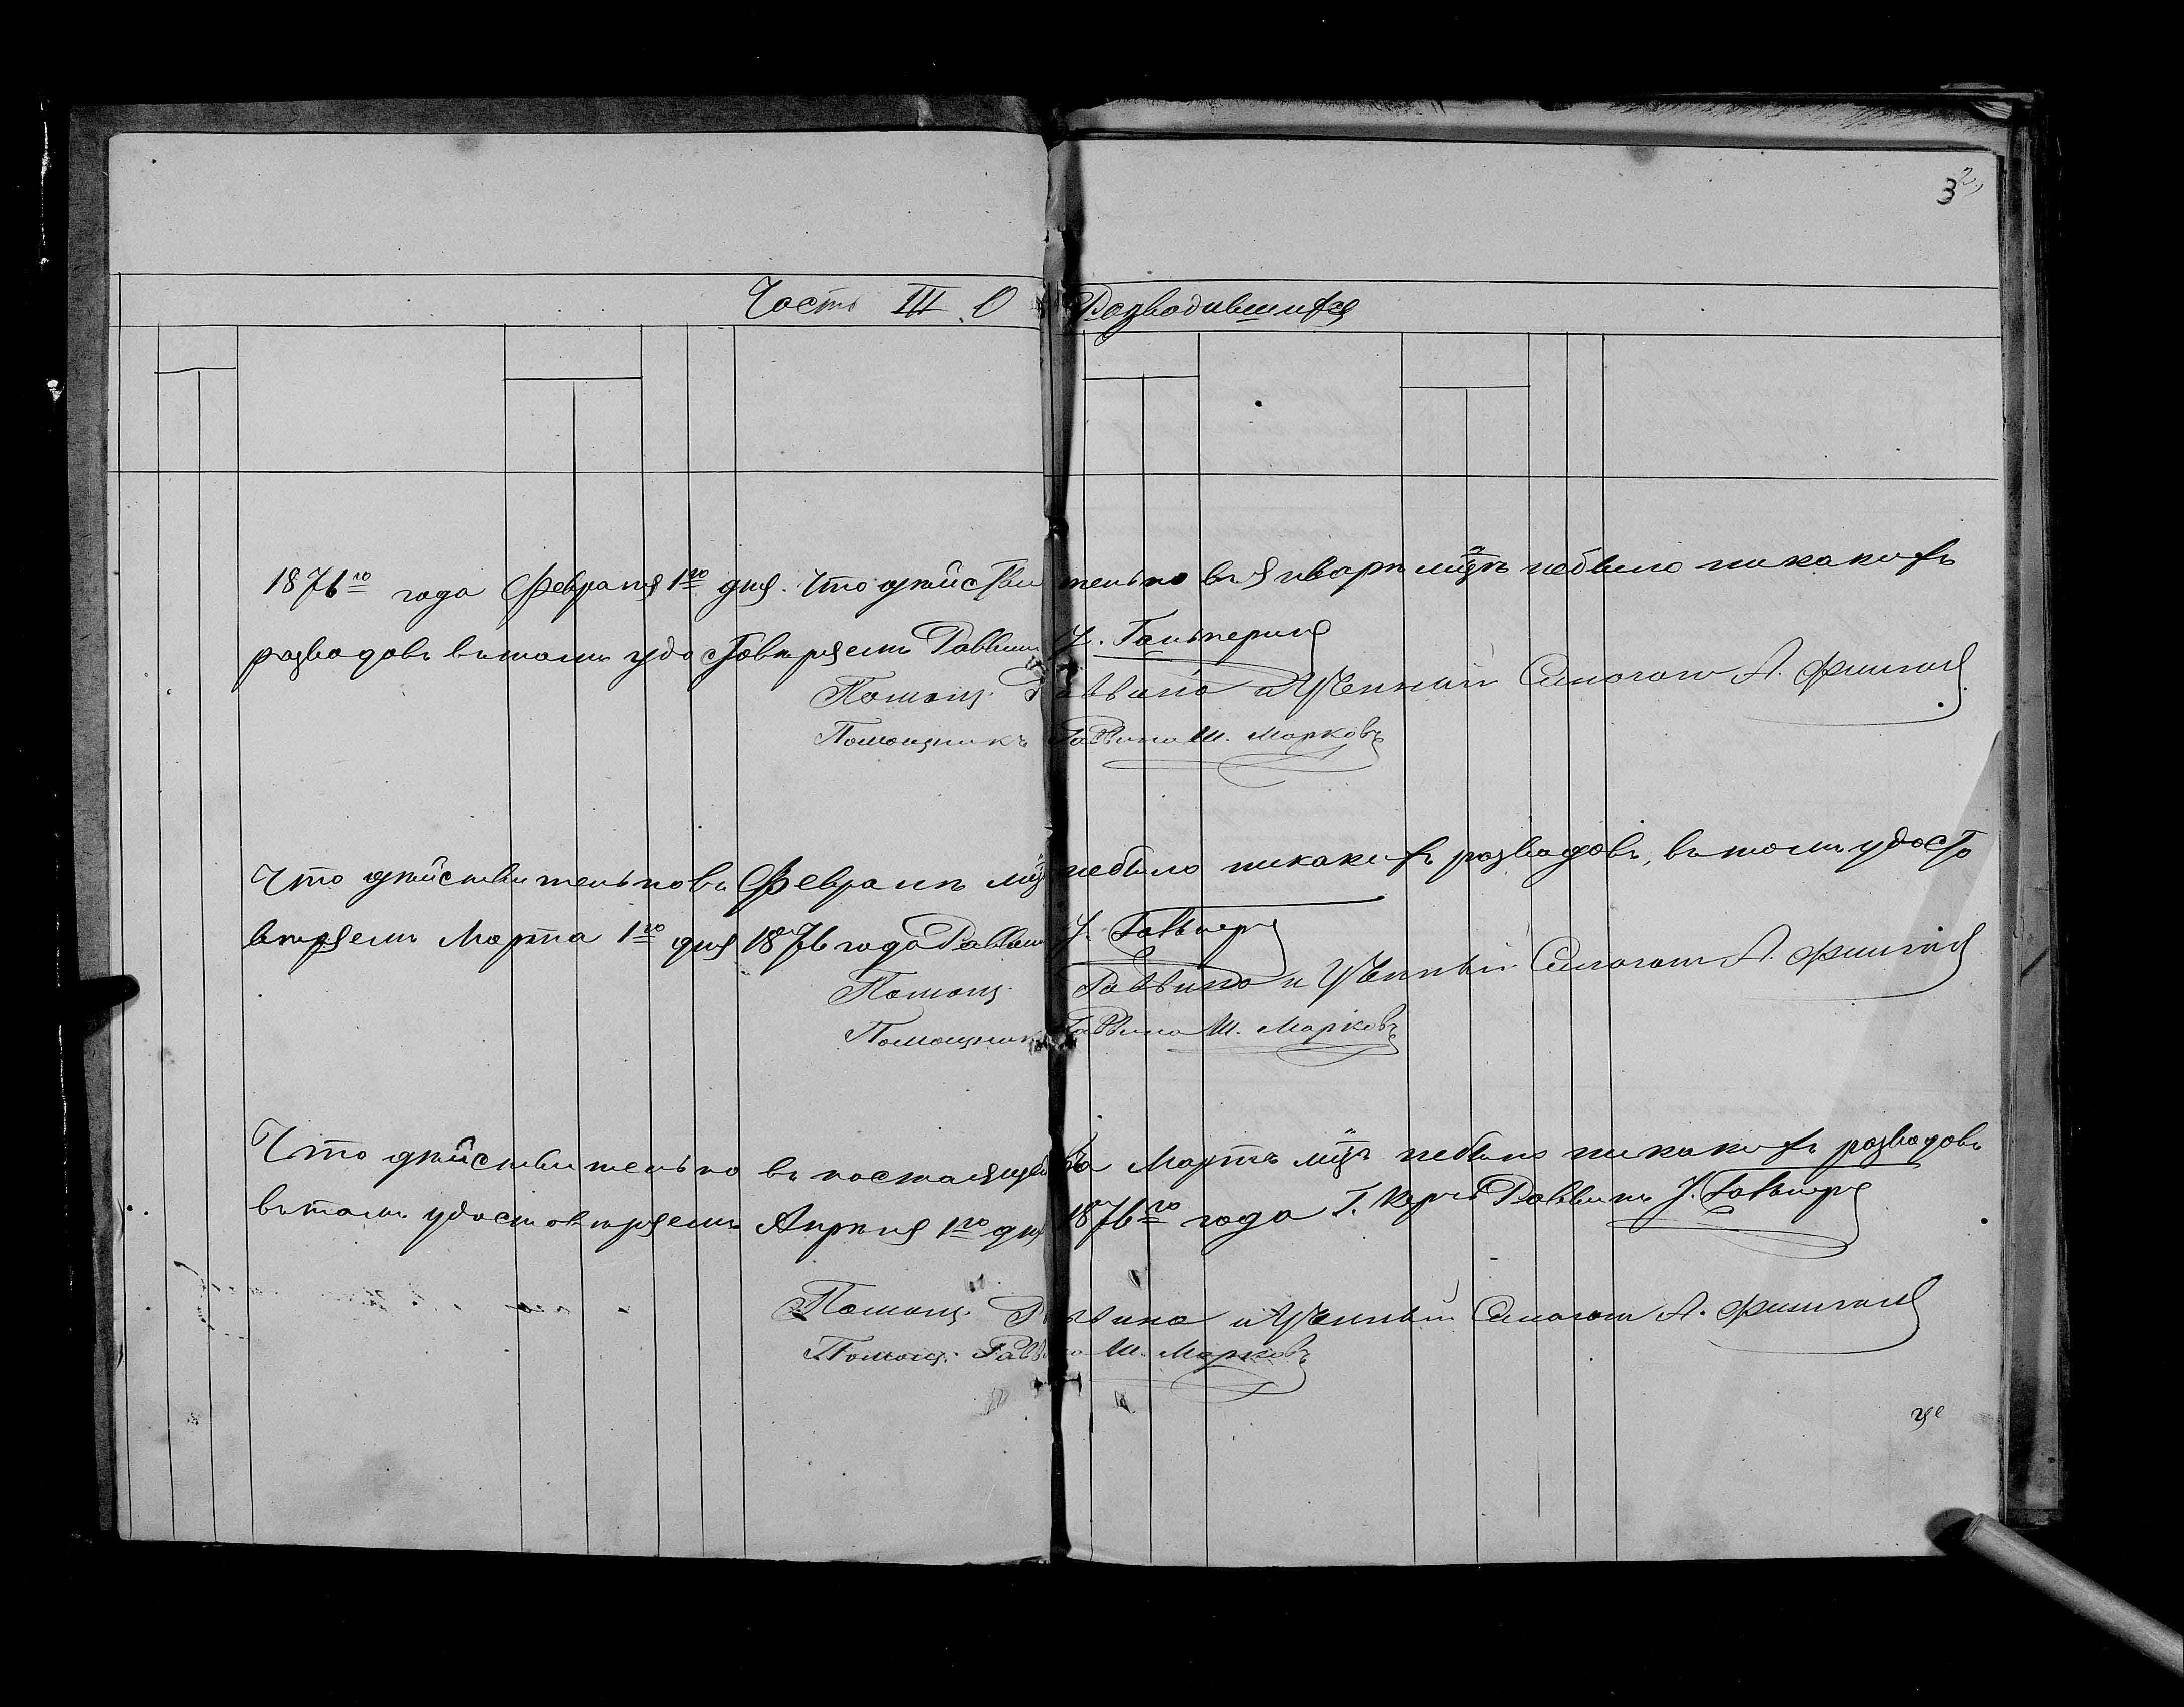 3
Часть III. О Разводившихся
1876го года Февраля 1го дня. Что дѣйствительно въ Январѣ мцѣ небыло никакихъ
разводовъ въ томъ удостовѣряемъ Раввинъ Гальперинъ
Помощ. Раввина и Ученный Синагоги А.
Помощникъ Раввина Ш. Марковъ
Что дѣйствительно въ Февралѣ мцѣ небыло никакихъ разводовъ, въ томъ удосто
вѣряемъ Марта 1го дня 1876 года Раввинъ
Помощ. Раввина и Ученный Синагоги А.
Помощникъ Раввина Ш. Марковъ
Что дѣйствительно въ Мартѣ мцѣ небыло никакихъ разводовъ
въ томъ удостовѣряемъ Апрѣля 1го дня 1876го года Г. Керчь Раввинъ
Помощ. Раввина и Ученный Синагоги А.
Помощ. Раввина Ш. Марковъ